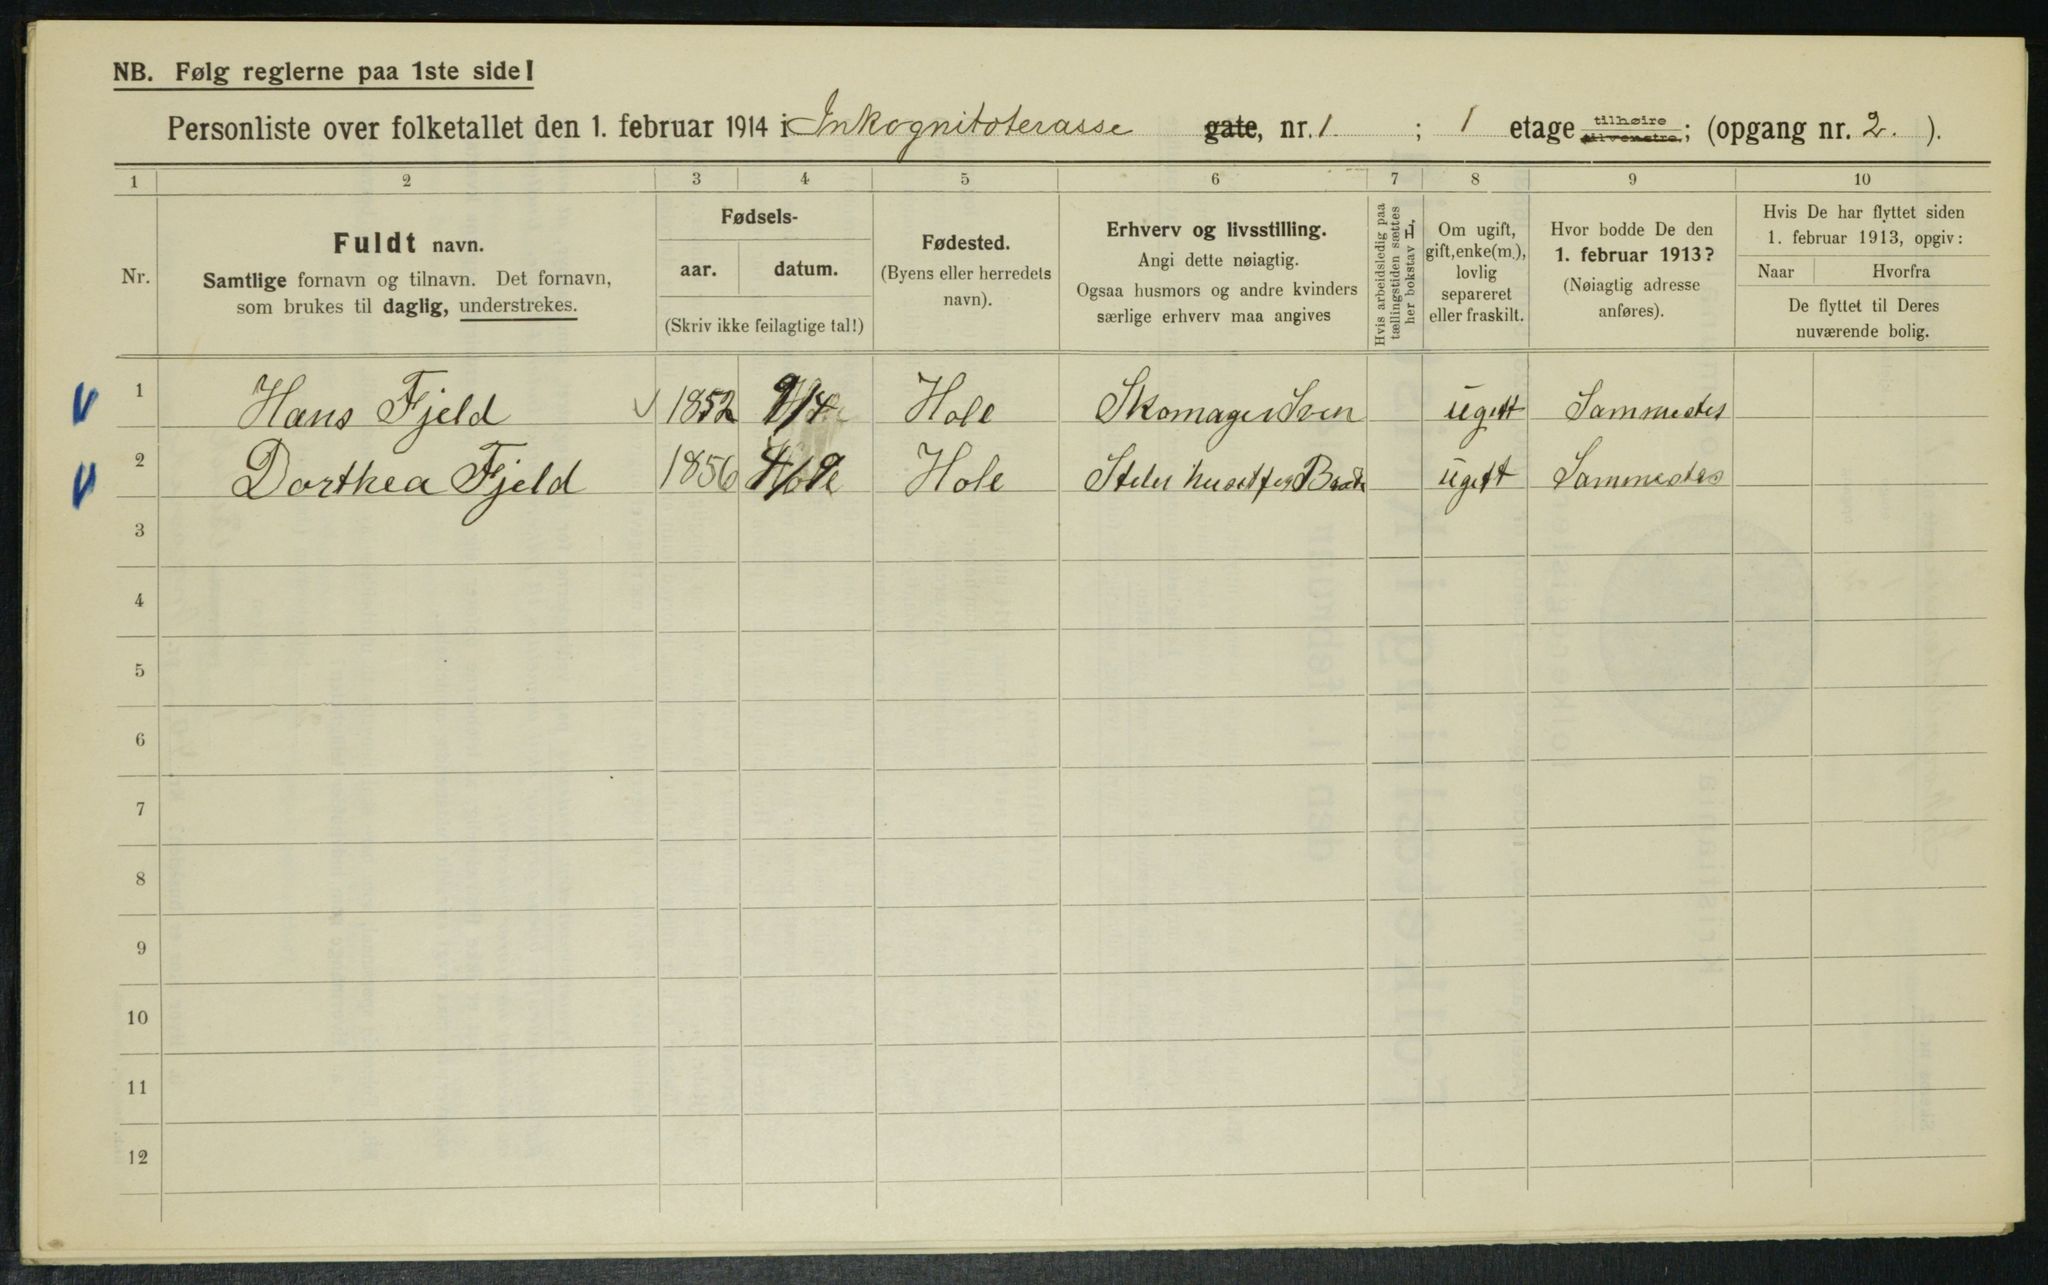 NB. Følg reglerne paa 1ste side!
Personliste over folketallet den 1. februar 1914 i Inkognitoterasse gate, nr. 1 ; 1 etage tilhøire tilvenstre; (opgang nr. 2. ).
1 2 3 4 5 6 7 8 9 10
Nr.
Fuldt navn.
Samtlige fornavn og tilnavn. Det fornavn,
som brukes til daglig, understrekes.
Fødsels-
aar. datum.
(Skriv ikke feilagtige tal!)
Fødested.
(Byens eller herredets
navn).
Erhverv og livsstilling.
Angi dette nøiagtig.
Ogsaa husmors og andre kvinders
særlige erhverv maa angives
Hvis arbeidsledig paa
tællingstiden sættes
her bokstav L,
Om ugift,
gift, enke(m.),
lovlig
separeret
eller fraskilt.
Hvor bodde De den
1. februar 1913?
(Nøiagtig adresse
anføres).
Hvis De har flyttet siden
1. februar 1913, opgiv:
Naar Hvorfra
De flyttet til Deres
nuværende bolig.
1 Hans Fjeld 1852 9/4 Hole Skomager Sven ugift Sammestes
2 Dorthea Fjeld 1856 4/9 Hole Steler huset for ugift Sammestes
3
4
5
6
7
8
9
10
11
12